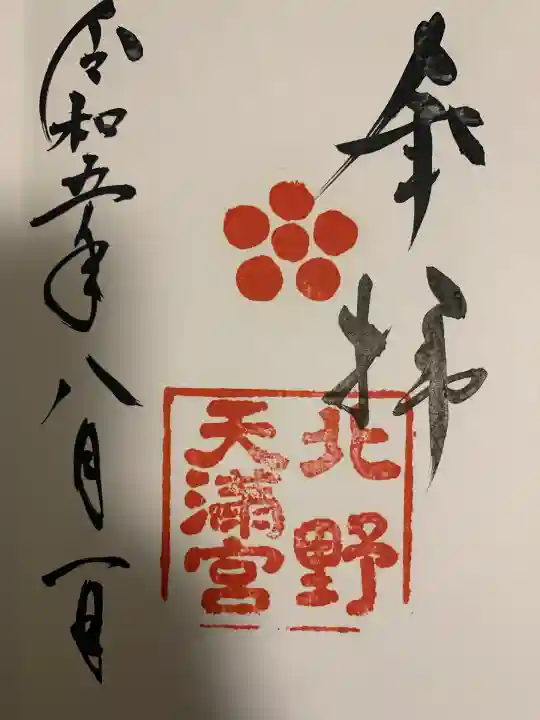 奉拝
北野
天満宮
令和五年八月一日